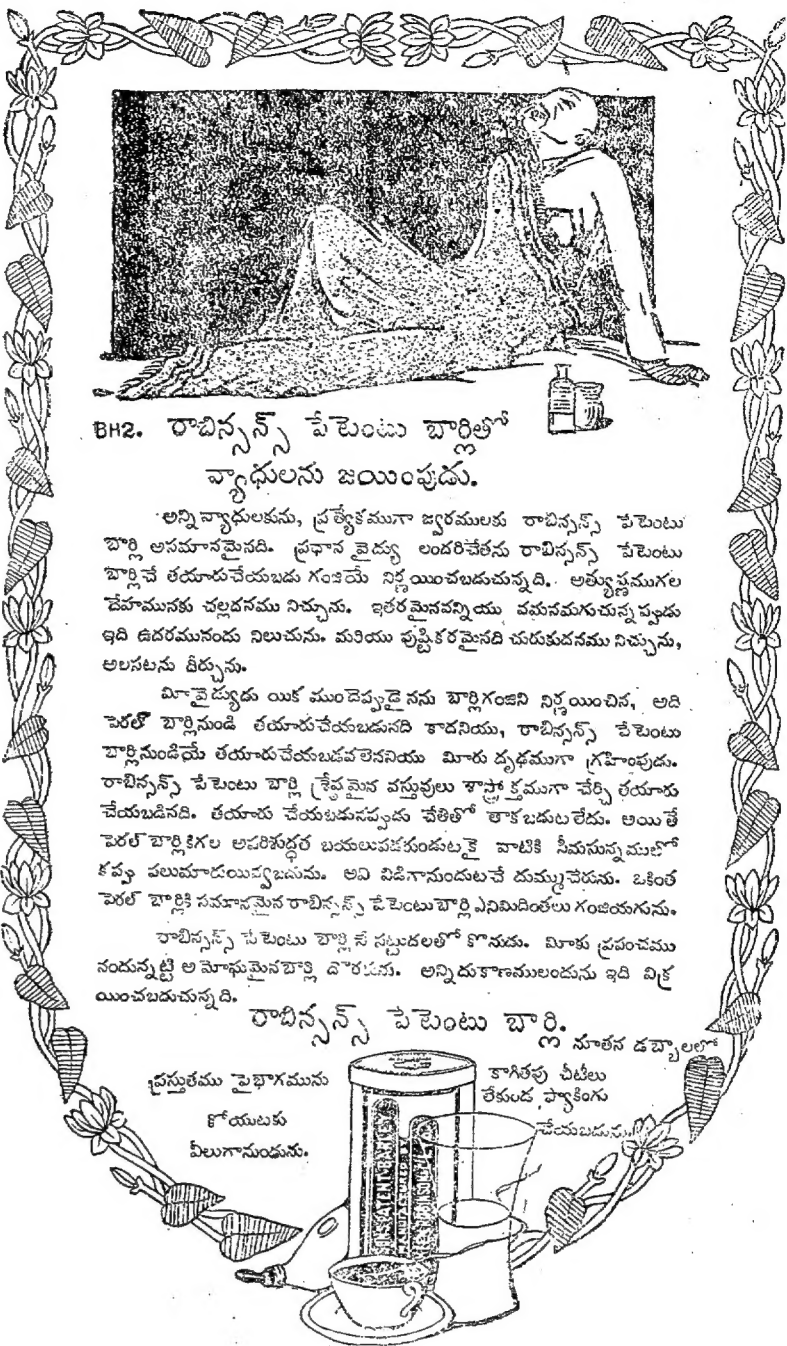 BH2. రాబిన్సన్స్ పేటెంటు బార్లితో
వ్యాధులను జయింపుడు.
అన్నివ్యాధులకును, ప్రత్యేకముగా జ్వరములకు రాబిన్సన్స్ పేటెంటు
బార్లి అసమానమైనది. ప్రధాన వైద్యు లందరిచేతను రాబిన్సన్స్ పేటెంటు
బార్లిచే తయారుచేయబడు గంజియే నిర్ణయించబడుచున్నది. అత్యుష్ణముగల
దేహమునకు చల్లదనము నిచ్చును. ఇతరమైనవన్నియు వమనమగుచున్నప్పుడు
ఇది ఉదరమునందు నిలుచును. మరియు పుష్టికరమైనది చురుకుదనము నిచ్చును,
అలసటను దీర్చును.
మీవైద్యుడు యిక ముందెప్పుడైనను బార్లిగంజిని నిర్ణయించిన, అది
పెరల్ బార్లినుండి తయారుచేయబడునది కాదనియు, రాబిన్సన్స్ పేటెంటు
బార్లినుండియే తయారుచేయబడవలెననియు మీరు దృఢముగా గ్రహింపుడు.
రాబిన్సన్స్ పేటెంటు బార్లి శ్రేష్ఠమైన వస్తువులు శాస్త్రోక్తముగా చేర్చి తయారు
చేయబడినది. తయారు చేయబడునప్పుడు చేతితో తాకబడుటలేదు. అయితే
పెరల్ బార్లికిగల అపరిశుద్ధత బయలుపడకుండుటకై వాటికి సీమసున్నములో
కప్పు పలుమారుయివ్వబడును. అవి విడిగానుండుటచే దుమ్ముచేరును. ఒకింత
పెరల్ బార్లికి సమానమైన రాబిన్సన్స్ పేటెంటుబార్లి ఎనిమిదింతలు గంజియగును.
రాబిన్సన్స్ పేటెంటు బార్లినే పట్టుదలతో కొనుడు. మీకు ప్రపంచము
నందున్నట్టి అమోఘమైనబార్లి దొరకును. అన్నిదుకాణములందును ఇది విక్ర
యించబడుచున్నది.
రాబిన్సన్స్ పేటెంటు బార్లి.
నూతన డబ్బాలలో
ప్రస్తుతము పైభాగమును
కోయుటకు
వీలుగానుండును.
కాగితపు చీటీలు
లేకుండ ప్యాకింగు
చేయబడును.